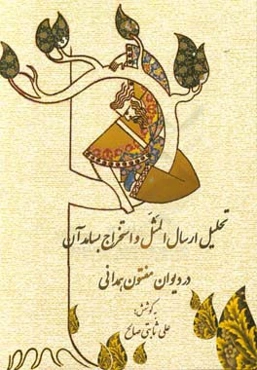 تحلیل ارسال المثل و استخراج بسامد آن
در دیوان مفتون همدانی
به کوشش:
علی ثابتی صالح